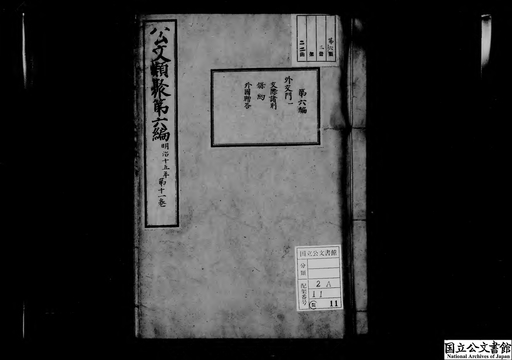 公文類聚第六編 明治十五年 第十一巻
第六編
外交門一
交際諸則
條約
外國贈答
国立公文書館
分類
配架番号
2 A
11
11
国立公文書館
National Archives of Japan